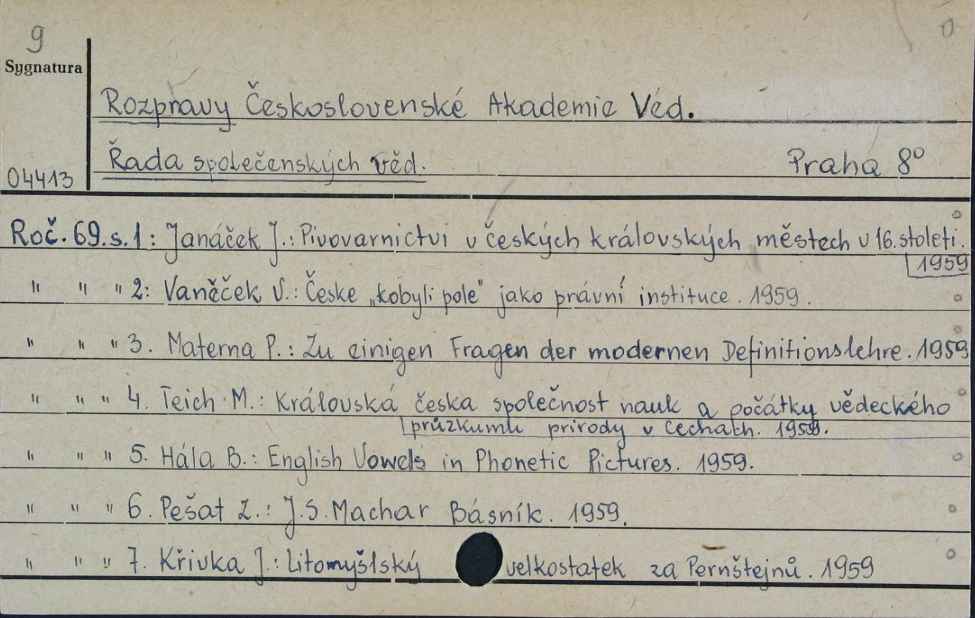 9
Sygnatura
Rozpravy Československé Akademie Věd.
Řada společenských věd. Praha 8°
04413
Roč. 69. s. 1: Janáček J.: Pivovarnictvi v českých královských městech v 16. stoleti.
1959
" " " 2: Vaněček V.: Česke „kobyli pole" jako právní instituce. 1959.
" " " 3. Materna P.: Zu einigen Fragen der modernen Definitionslehre. 1959
" " " 4. Teich M.: Královská česka společnost nauk a počátky vědeckého
průzkumu prirody v Cechach. 1959.
" " " 5. Hála B.: English Vowels in Phonetic Pictures. 1959.
" " " 6. Pešat Z.: J. S. Machar Básník. 1959.
" " " 7. Křivka J.: Litomyšlský velkostatek za Pernštejnů. 1959